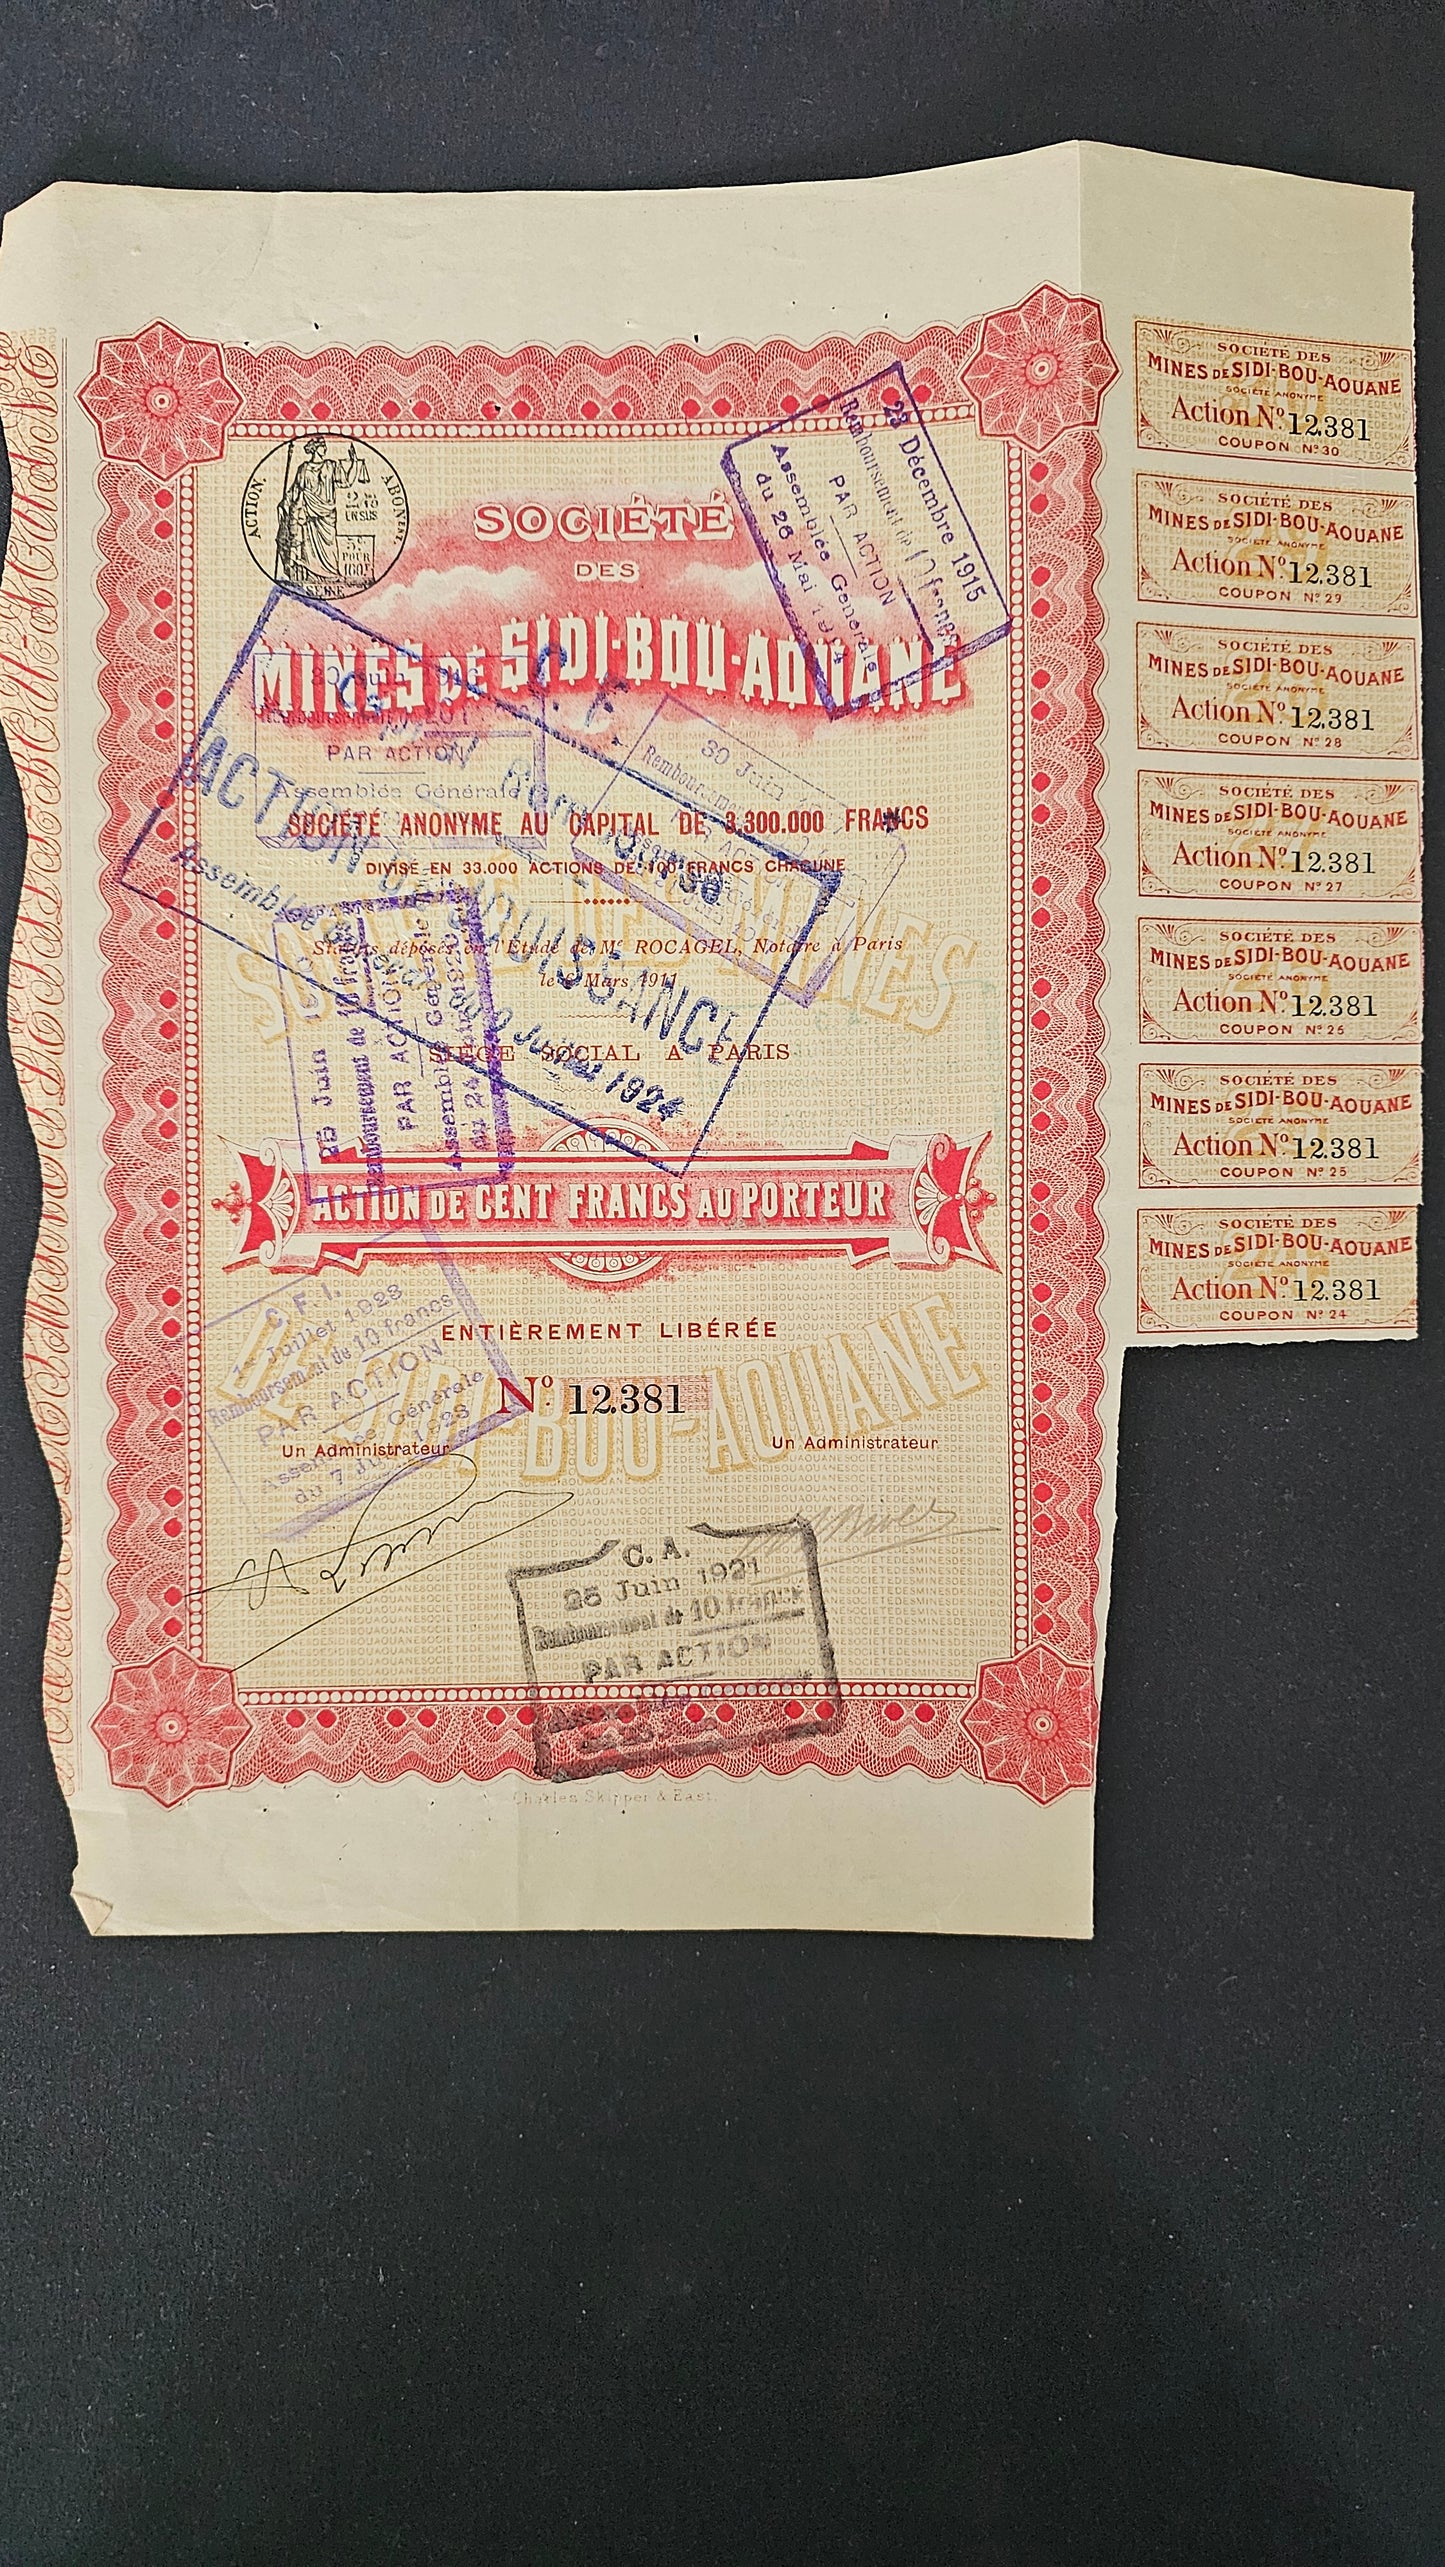 ACTION.
ABONNT
SOCIÉTÉ
DES
MINES DE SIDI-BOU-AOUANE
SOCIÉTÉ ANONYME AU CAPITAL DE 3.300.000 FRANCS
DIVISÉ EN 33.000 ACTIONS DE 100 FRANCS CHACUNE
Statuts déposés en l'Étude de Me ROCAGEL, Notaire à Paris
le 6 Mars 1911
SIÈGE SOCIAL A PARIS
ACTION DE CENT FRANCS AU PORTEUR
ENTIÈREMENT LIBÉRÉE
No. 12.381
Un Administrateur
Un Administrateur
Charles Skipper & East.
SOCIÉTÉ DES MINES
DE SIDI-BOU-AOUANE
23 Décembre 1915
Remboursement de 10 francs
PAR ACTION
Assemblée Générale
du 26 Mai
PAR ACTION
Assemblée Générale
30 Juin
ACTION DE JOUISSANCE
Juillet 1924
25 Juin
Remboursement de 10 francs
PAR ACTION
Assemblée Générale
du 24
C.F.I.
1er Juillet 1923
Remboursement de 10 francs
PAR ACTION
Assemblée Générale
du 7
C.A.
25 Juin 1921
Remboursement de 10 francs
PAR ACTION
SOCIÉTÉ DES
MINES DE SIDI-BOU-AOUANE
SOCIÉTÉ ANONYME
Action No. 12.381
COUPON No. 30
SOCIÉTÉ DES
MINES DE SIDI-BOU-AOUANE
SOCIÉTÉ ANONYME
Action No. 12.381
COUPON No. 29
SOCIÉTÉ DES
MINES DE SIDI-BOU-AOUANE
SOCIÉTÉ ANONYME
Action No. 12.381
COUPON No. 28
SOCIÉTÉ DES
MINES DE SIDI-BOU-AOUANE
SOCIÉTÉ ANONYME
Action No. 12.381
COUPON No. 27
SOCIÉTÉ DES
MINES DE SIDI-BOU-AOUANE
SOCIÉTÉ ANONYME
Action No. 12.381
COUPON No. 26
SOCIÉTÉ DES
MINES DE SIDI-BOU-AOUANE
SOCIÉTÉ ANONYME
Action No. 12.381
COUPON No. 25
SOCIÉTÉ DES
MINES DE SIDI-BOU-AOUANE
SOCIÉTÉ ANONYME
Action No. 12.381
COUPON No. 24